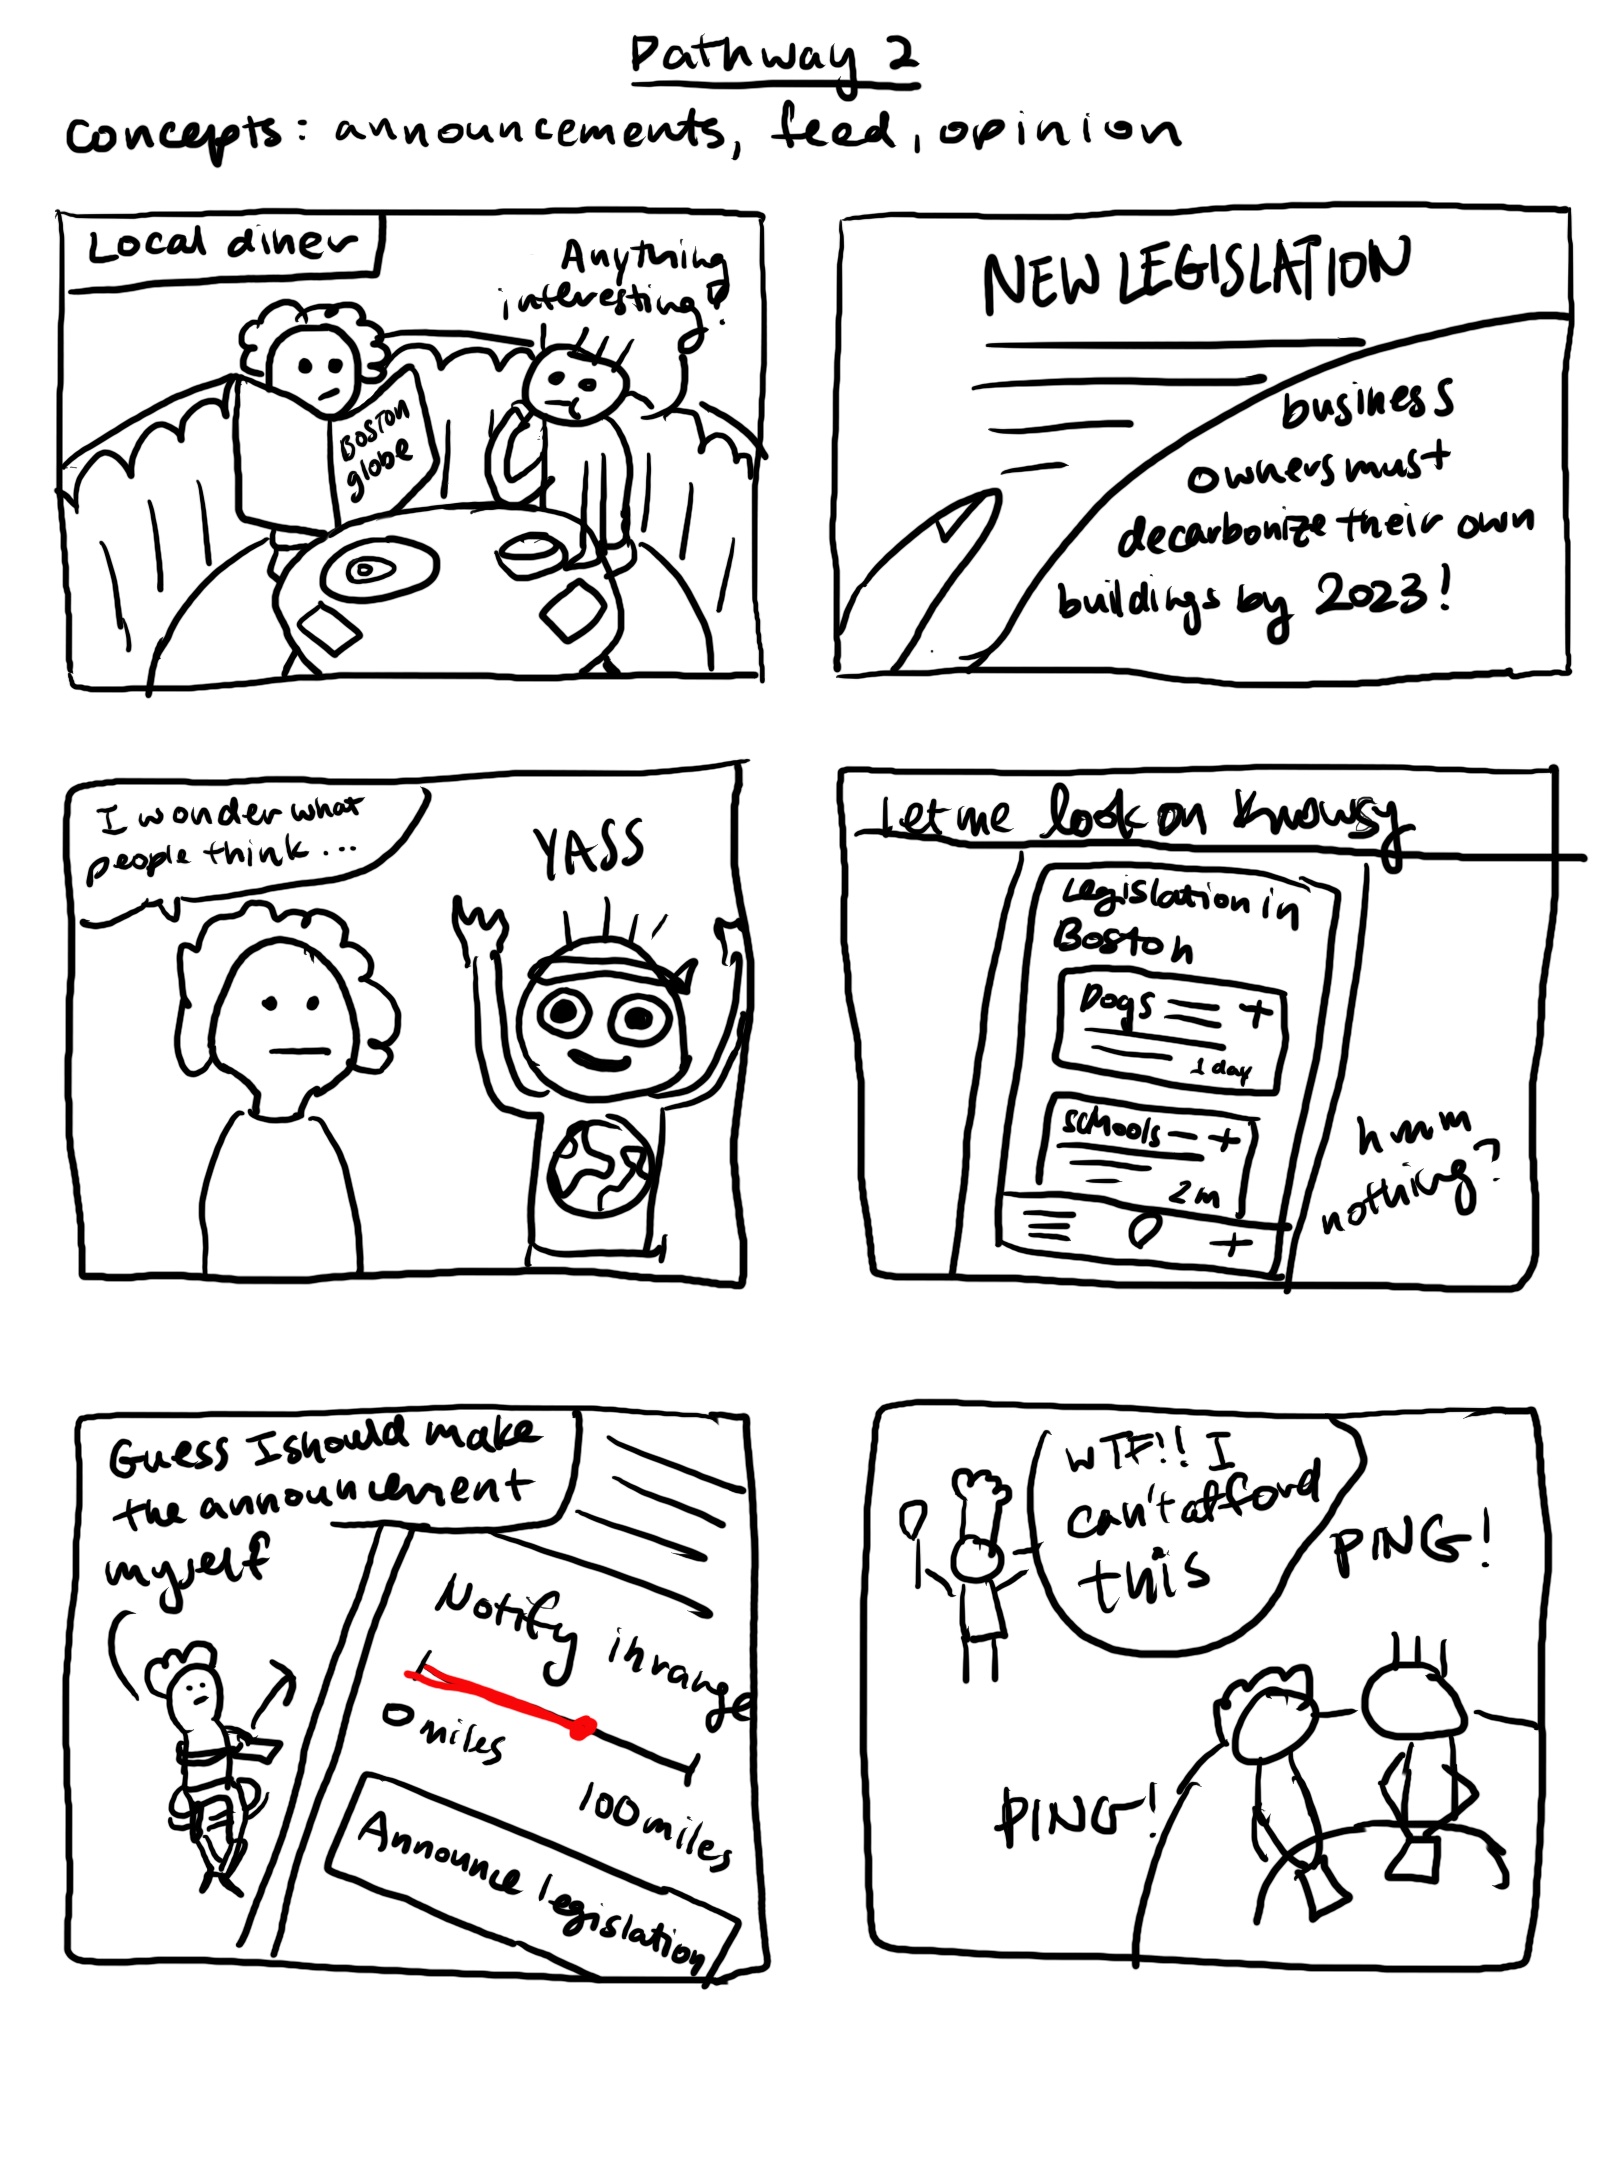 Pathway 2
concepts: announcements, feed, opinion
Local diner
Anything
interesting?
Boston
globe
NEW LEGISLATION
business
owners must
decarbonize their own
buildings by 2023!
I wonder what
people think...
YASS
Let me look on Knowsy
Legislation in
Boston
Dogs +
1 day
schools +
2m
+
hmm
nothing?
Guess I should make
the announcement
myself
Notify in range
0 miles
100 miles
Announce legislation
WTF!! I
can't afford
this
PING!
PING!